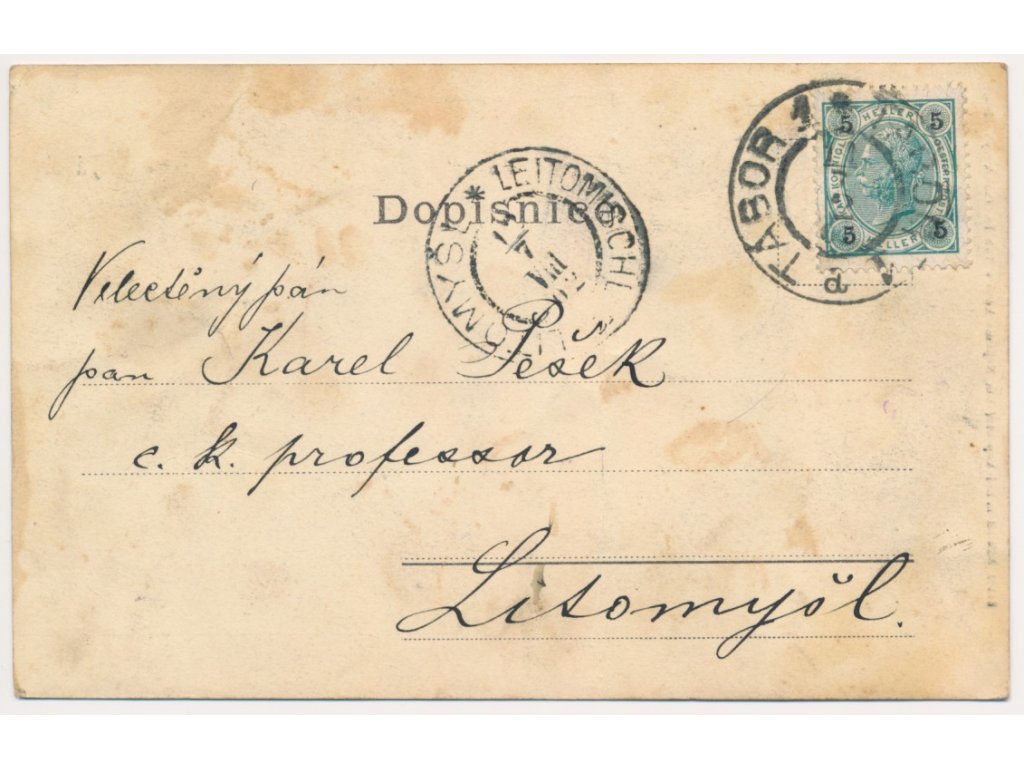 Dopisnice
* LEITOMISCHL *
LITOMYŠL
TÁBOR 1
d
5 HELLER 5
5 HELLER 5
Velectěný pán
pan Karel Pešek
c. k. professor
Litomyšl.